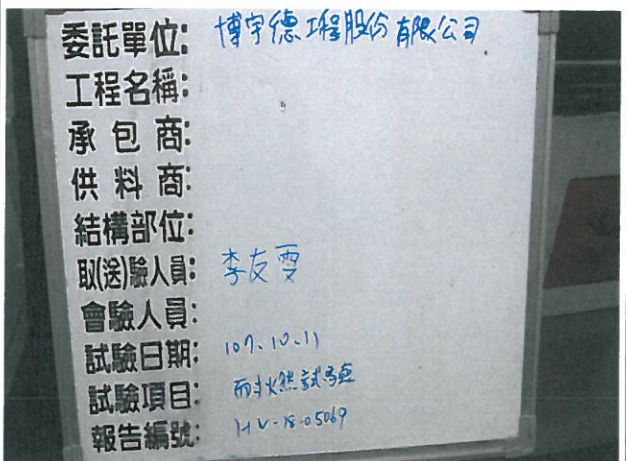 委託單位: 博宇德工程股份有限公司
工程名稱:
承包商:
供料商:
結構部位:
取(送)驗人員: 李友雯
會驗人員:
試驗日期: 107.10.11
試驗項目: 耐燃試驗
報告編號: HV-18-05069